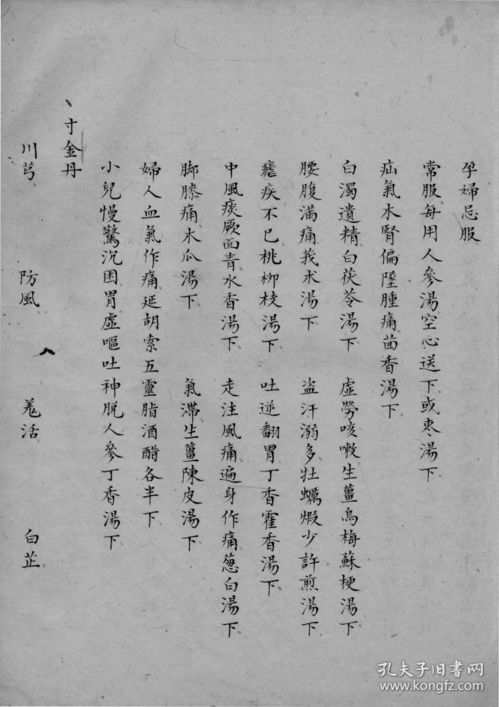 孕婦忌服
常服每用人參湯空心送下或棗湯下
疝氣木腎偏墜腫痛茴香湯下
白濁遺精白茯苓湯下　虛勞咳嗽生薑烏梅蘇梗湯下
腰腹滿痛莪朮湯下　盜汗溺多牡蠣煆少許煎湯下
瘧疾不已桃柳枝湯下　吐逆翻胃丁香霍香湯下
中風痰厥面青木香湯下　走注風痛遍身作痛葱白湯下
脚膝痛木瓜湯下　氣滯生薑陳皮湯下
婦人血氣作痛延胡索五靈脂酒醋各半下
小兒慢驚沉困胃虛嘔吐神脫人參丁香湯下
寸金丹
川芎　防風　羗活　白芷
孔夫子旧書网
www.kongfz.com